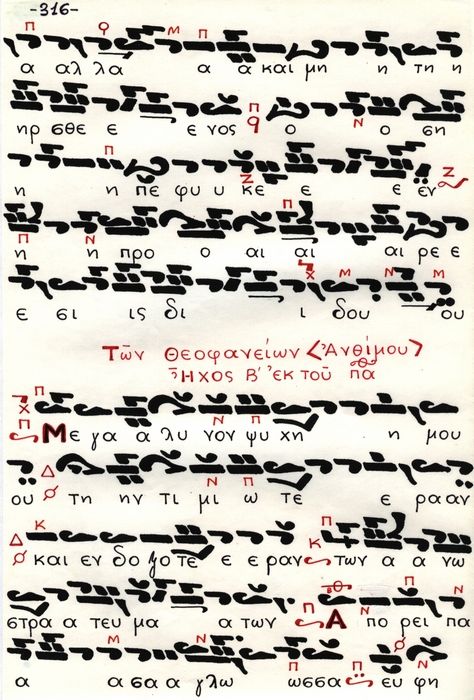 -316-
α αλ λα α α και μη η τη η
ηρ σθε ε ε νος ο ο ση
η η πε φυ υ κε ε ε εν
η η προ ο αι αι αι ρε ε
ε σι ις δι ι δου ου
Τῶν Θεοφανείων <Ἀνθίμου>
Ἦχος Β' ἐκ τοῦ πα
Με γα α λυ νον ψυ χη η μου
ου τη ην τι μι ω τε ε ρα αν
και εν δο ξο τε ε ε ραν των α α νω
στρα α τευ μα α των Α πο ρει πα
α α σα α γλω ωσσα ευ φη